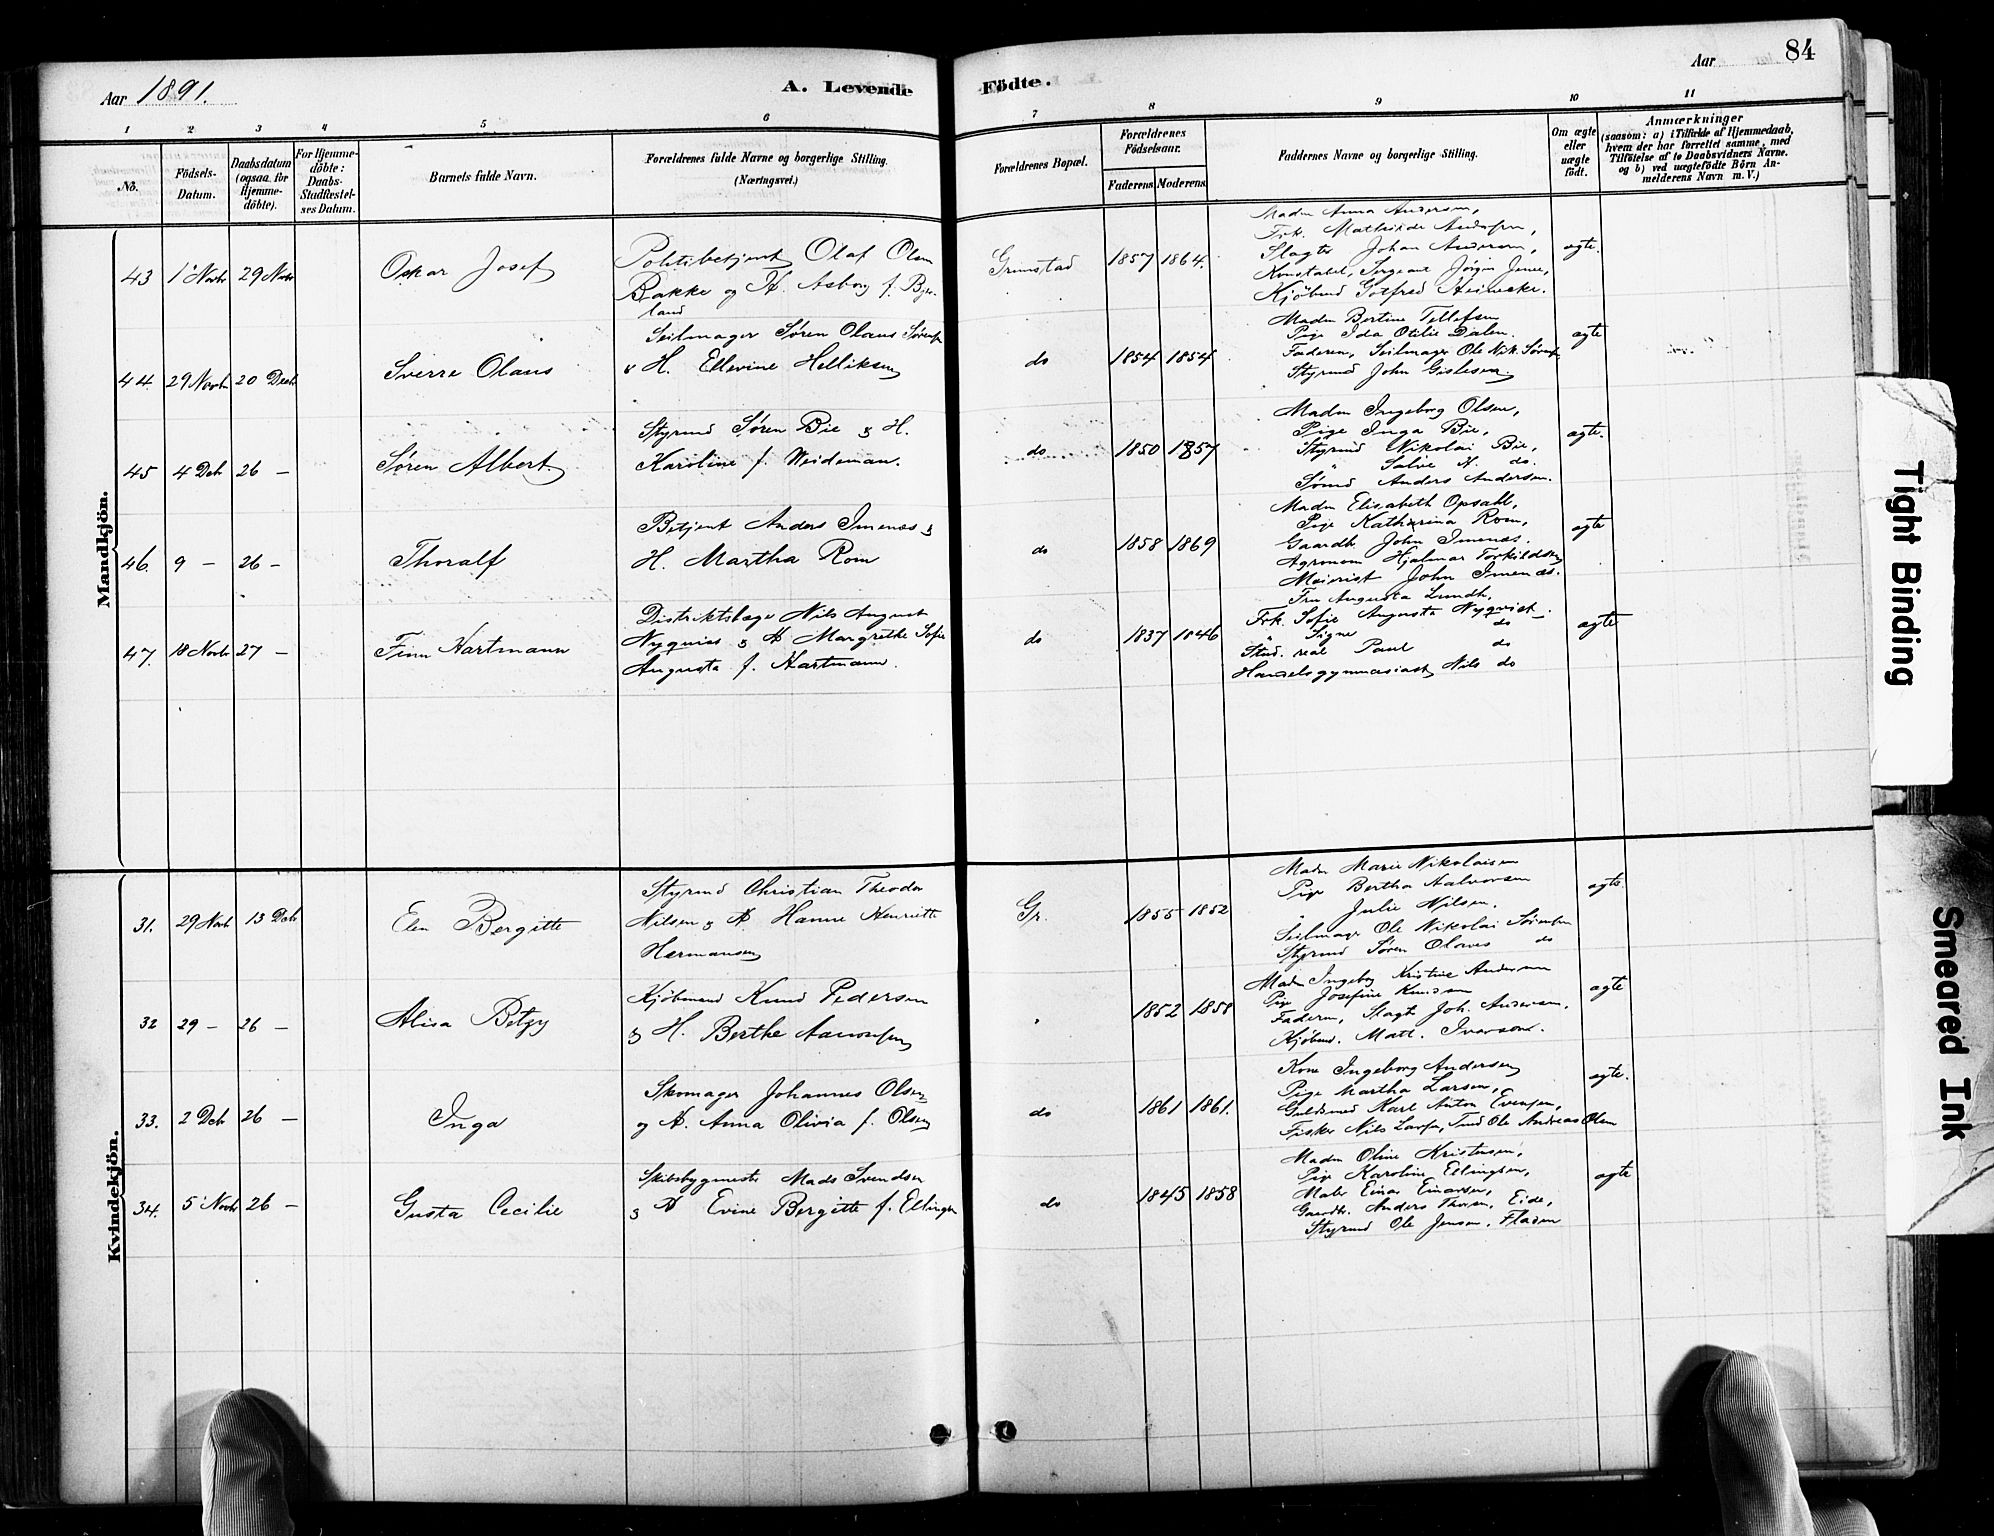 Aar 1891.
A. Levende Födte.
Aar
84
1 2 3 4 5 6 7 8 9 10 11
No.
Födsels-Datum.
Daabsdatum (ogsaa for Hjemme-döbte).
For Hjemme-döbte: Daabs-Stadfæstel-ses Datum.
Barnets fulde Navn.
Forældrenes fulde Navne og borgerlige Stilling.
(Næringsvei.)
Forældrenes Bopæl.
Forældrenes Födselsaar.
Faderens Moderens
Faddernes Navne og borgerlige Stilling.
Om ægte eller uægte født.
Anmærkninger
(saasom: a) i Tilfælde af Hjemmedaab, hvem der har forrettet samme, med Tilföielse af to Daabsvidners Navne. og b) ved uægtefödte Börn An-melderens Navn m. V.)
Mandkjön.
43 1 Novbr 29 Novbr
Oskar Josef
Politibetjent Olaf Olsen
Bakke og H. Asborg f. Byg-
land
Grimstad
1857 1864.
Madm Anna Andersen,
Frk. Mathilde Andersen
Slagter Johan Andersen,
Konstabel, Sergeant Jörgen Jense,
Kjöbmd Gotfred Heinecke.
ægte.
44. 29 Novbr 20 Decbr
Sverre Olaus
Seilmager Søren Olaus Sørensen
& H. Ellevine Helliksen
do
1854 1854
Madm Bertine Tellefsen
Pige Ida Otilie Dalen.
Faderen, Seilmager Ole Nik. Sørensen
Styrmd John Gislesen.
ægte
45 4 Decb 26 —
Søren Albert
Styrmd Søren Bie & H.
Karoline f. Weideman.
do
1850 1857
Madm Ingeborg Olsen,
Pige Inga Bie,
Styrmd Nikolai Bie,
" Salve H. do.
Sömd Anders Andersen.
ægte.
46. 9 — 26 —
Thoralf
Betjent Anders Imenæs &
H. Martha Rom
do
1858 1869
Madm Elisabeth Opsahl,
Pige Katharina Rom,
Gaardb. John Imenæs.
Agronom Hjalmar Torkildsen
Meierist John Imenæs.
ægte
47. 18 Novbr 27 —
Finn Hartmann
Distriktslæge Nils August
Nyquist & H Margrethe Sofie
Augusta f. Hartmann.
do
1837 1846
Fru Augusta Lundh,
Frk. Sofie Augusta Nyqvist
" Signe do
Stud. real Paul do
Handelsgymnasiast Nils do
ægte
Kvindekjön.
31. 29 Novbr 13 Decb
Elen Bergitte
Styrmd Christian Theodor
Nilsen & H. Hanne Henriette
Hermansen
Gr.
1855 1852
Madm Marie Nikolaisen
Pige Bertha Aalvorsen
" Julie Nilsen.
Seilmager Ole Nikolai Sørensen
Styrmd Søren Olaves do
ægte.
32 29 — 26 —
Alisa Betzy
Kjöbmand Knud Pedersen
& H. Berthe Aanonsen
"
1852 1858
Madm Ingeborg Kristine Andersen
Pige Josefine Knudsen
Faderen, Slagt. Joh. Andersen,
Kjöbmd. Matt. Ivarsen.
ægte
33. 2 Decb 26 —
Inga
Skomager Johannes Olsen
og H. Anna Olivia f. Olsen
do
1861 1861.
Kone Ingeborg Andersen
Pige Martha Larsen,
Guldsmed Karl Anton Evensen,
Fisker Nils Larsen, Tmd Ole Andreas Olsen
ægte.
34. 5 Novbr 26 —
Gusta Cecilie
Skibsbygmester Mads Svendsen
& H Evine Bergitte f. Ellingsen
do
1845 1858
Madm Oline Kristensen,
Pige Karoline Ellingsen,
Maler Einar Einarsen,
Gaardbr. Anders Thorsen, Eide,
Styrmd Ole Jensen, Fladen
ægte
Tight Binding
Smeared Ink